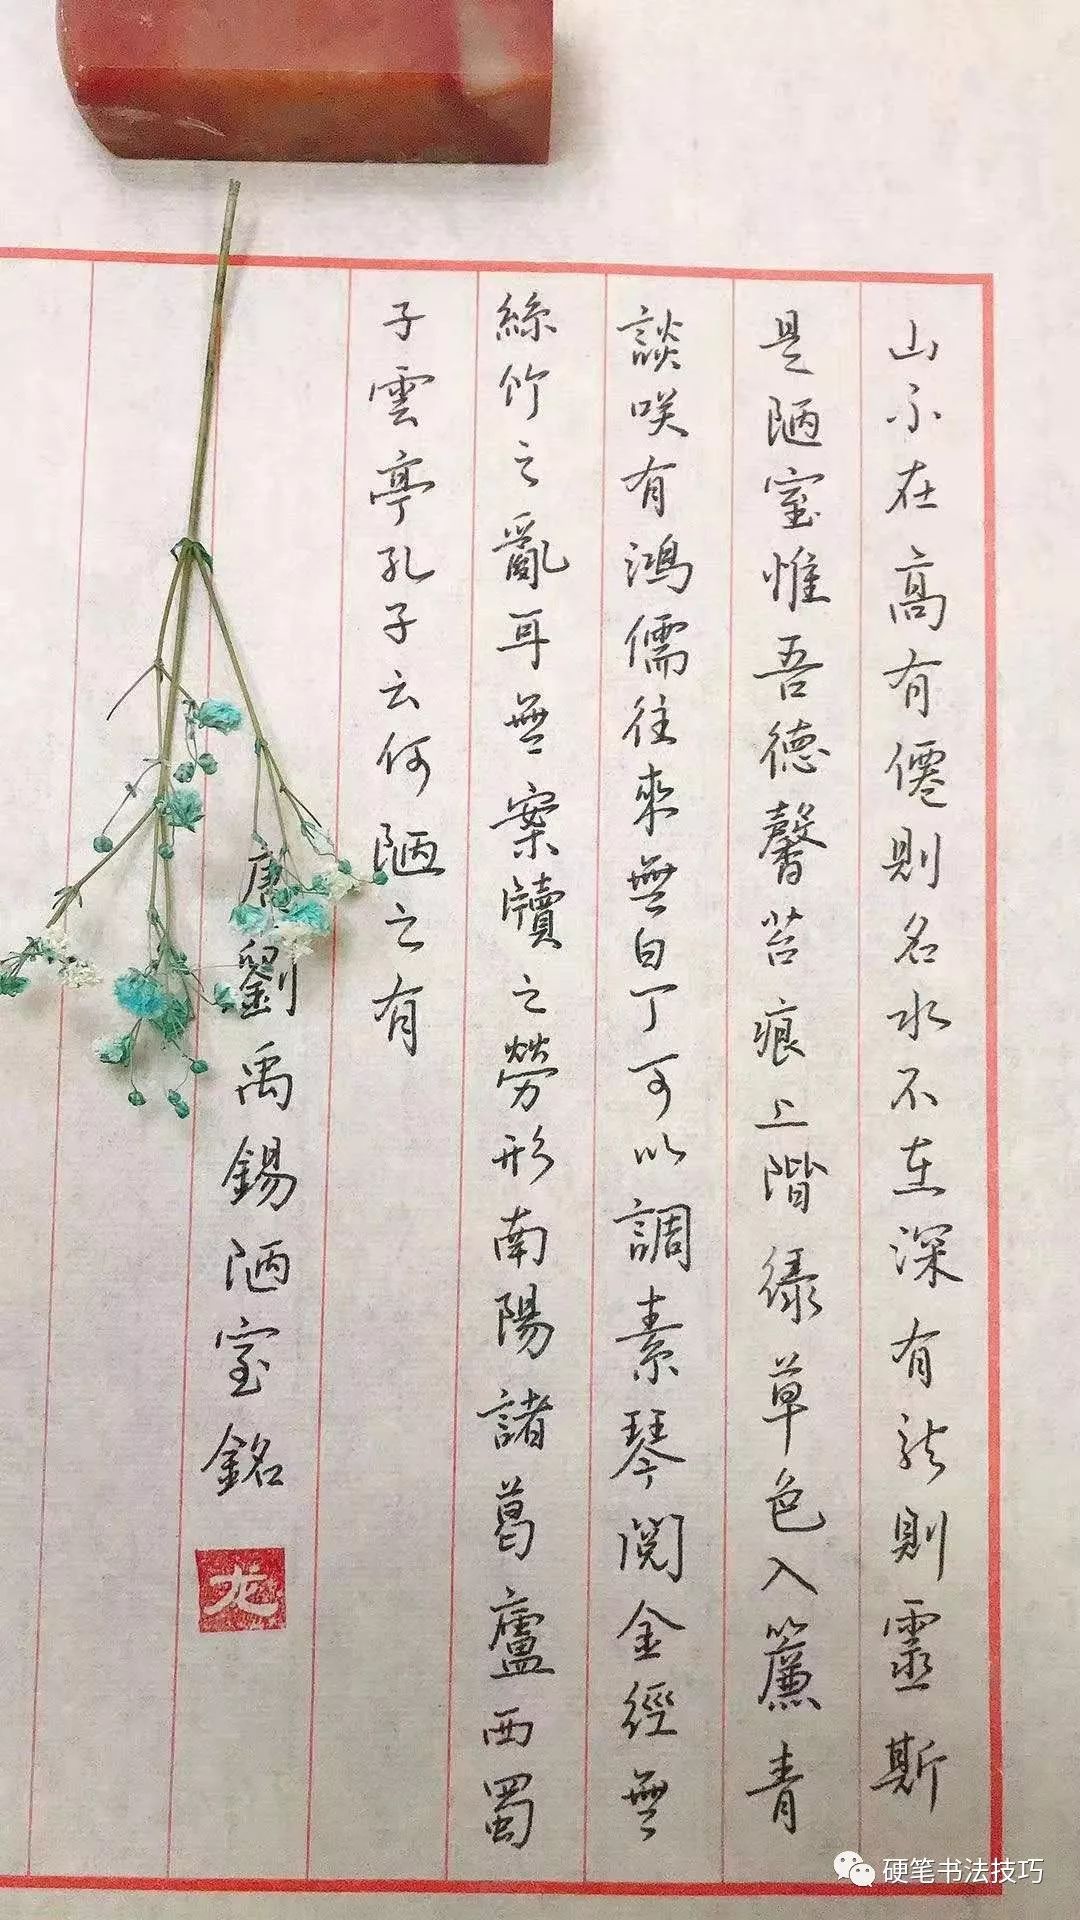 山不在高有僊則名水不在深有龙則靈斯
是陋室惟吾德馨苔痕上階緑草色入簾青
談咲有鴻儒往來無白丁可以調素琴閱金經無
絲竹之亂耳無案牘之勞形南陽諸葛廬西蜀
子雲亭孔子云何陋之有
唐劉禹錫陋室銘
龙
硬笔书法技巧